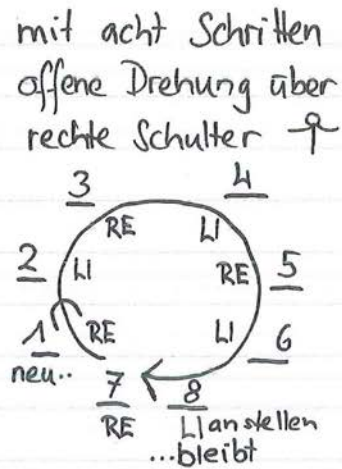 mit acht Schritten
offene Drehung über
rechte Schulter
3 4
RE LI
2 LI RE 5
1 RE LI 6
neu..
7 8
RE LI anstellen
...bleibt